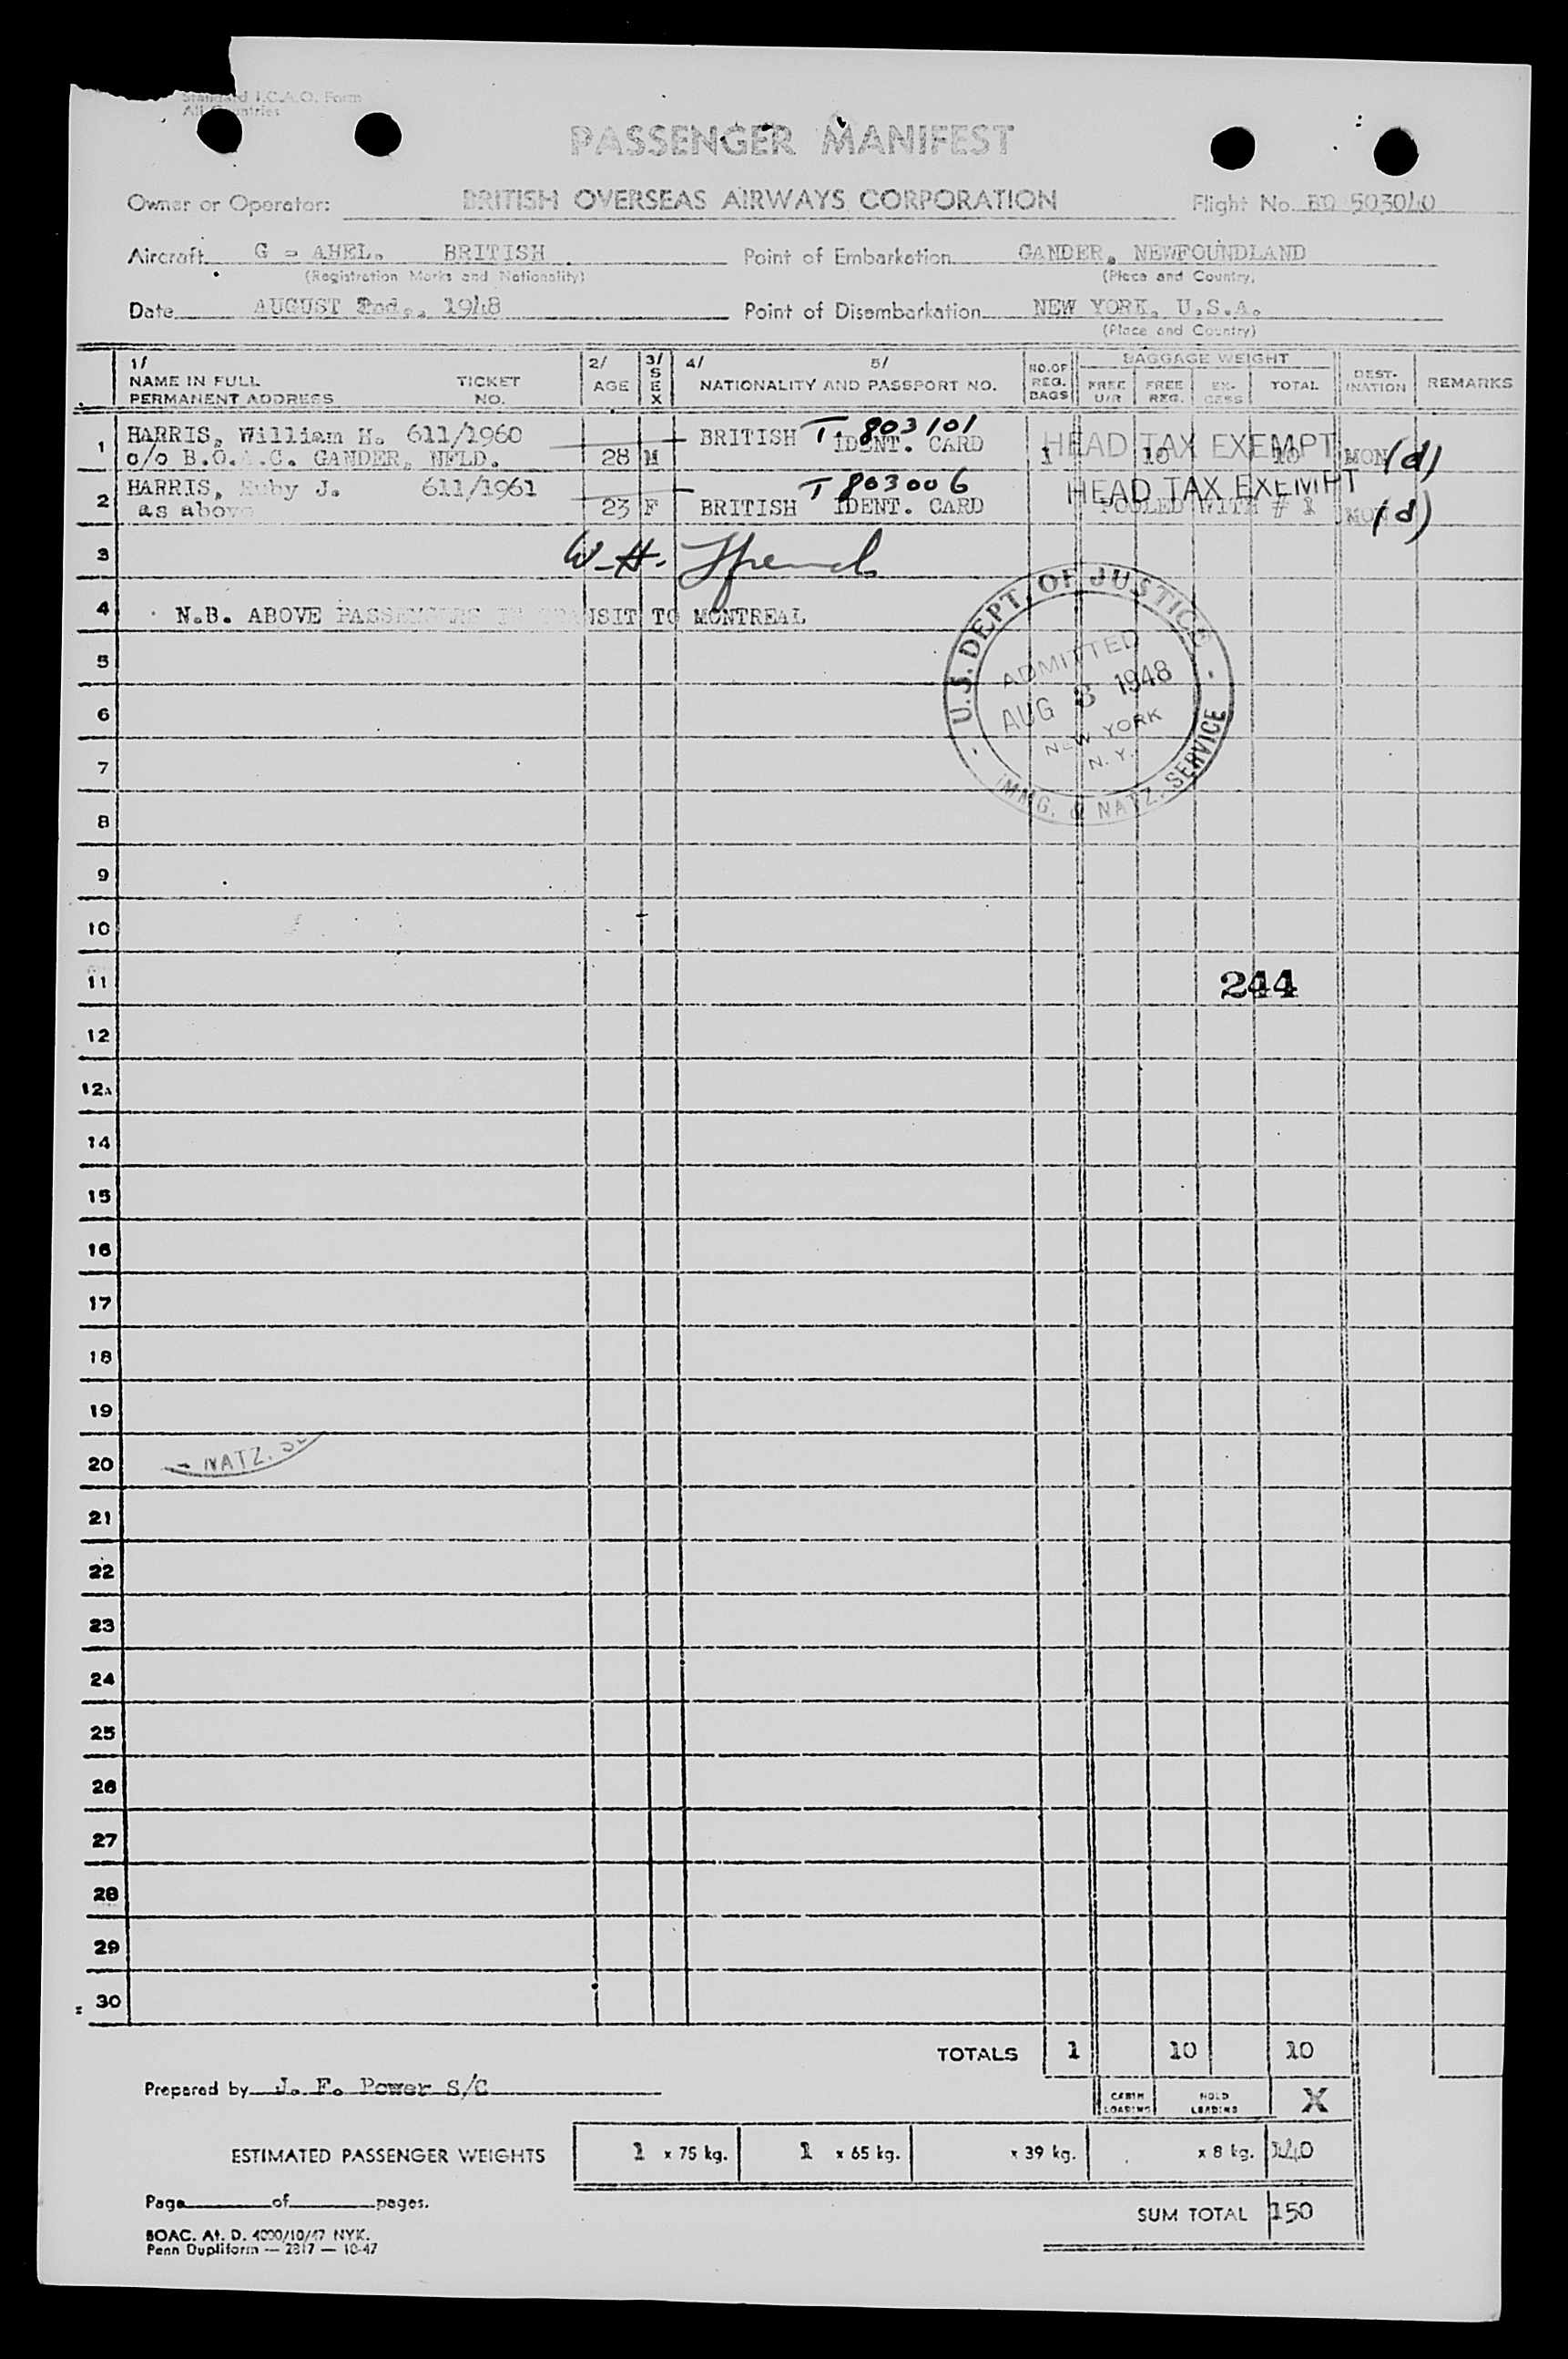 Standard I.C.A.O. Form
All Countries
PASSENGER MANIFEST
Owner or Operator: BRITISH OVERSEAS AIRWAYS CORPORATION Flight No. BO 503040
Aircraft G - AHEL. BRITISH Point of Embarkation GANDER, NEWFOUNDLAND
(Registration Marks and Nationality) (Place and Country)
Date AUGUST 2nd., 1948 Point of Disembarkation NEW YORK, U.S.A.
(Place and Country)
1/ NAME IN FULL PERMANENT ADDRESS TICKET NO. 2/ AGE 3/ SEX 4/ 5/ NATIONALITY AND PASSPORT NO. NO. OF REG. BAGS BAGGAGE WEIGHT FREE U/R FREE REG. EX-CESS TOTAL DEST-INATION REMARKS
T 803101
1 HARRIS, William H. 611/1960 BRITISH IDENT. CARD HEAD TAX EXEMPT
c/o B.O.A.C. GANDER, NFLD. 28 M 1 10 10 MON (d)
T 803006
2 HARRIS, Ruby J. 611/1961 HEAD TAX EXEMPT
as above 23 F BRITISH IDENT. CARD POOLED WITH # 1 MON (d)
3 W.H.
4 N.B. ABOVE PASSENGERS IN TRANSIT TO MONTREAL
U.S. DEPT. OF JUSTICE
ADMITTED
AUG 3 1948
NEW YORK
N.Y.
IMMG. & NATZ. SERVICE
5
6
7
8
9
10
11 244
12
12A
14
15
16
17
18
19
20 NATZ.
21
22
23
24
25
26
27
28
29
30
TOTALS 1 10 10
Prepared by J. F. Power S/C
CABIN LOADING HOLD LOADING X
ESTIMATED PASSENGER WEIGHTS 1 x 75 kg. 1 x 65 kg. x 39 kg. x 8 kg. 140
Page of pages.
SUM TOTAL 150
BOAC. At. D. 4000/10/47 NYK.
Penn Dupliform — 2817 — 10-47